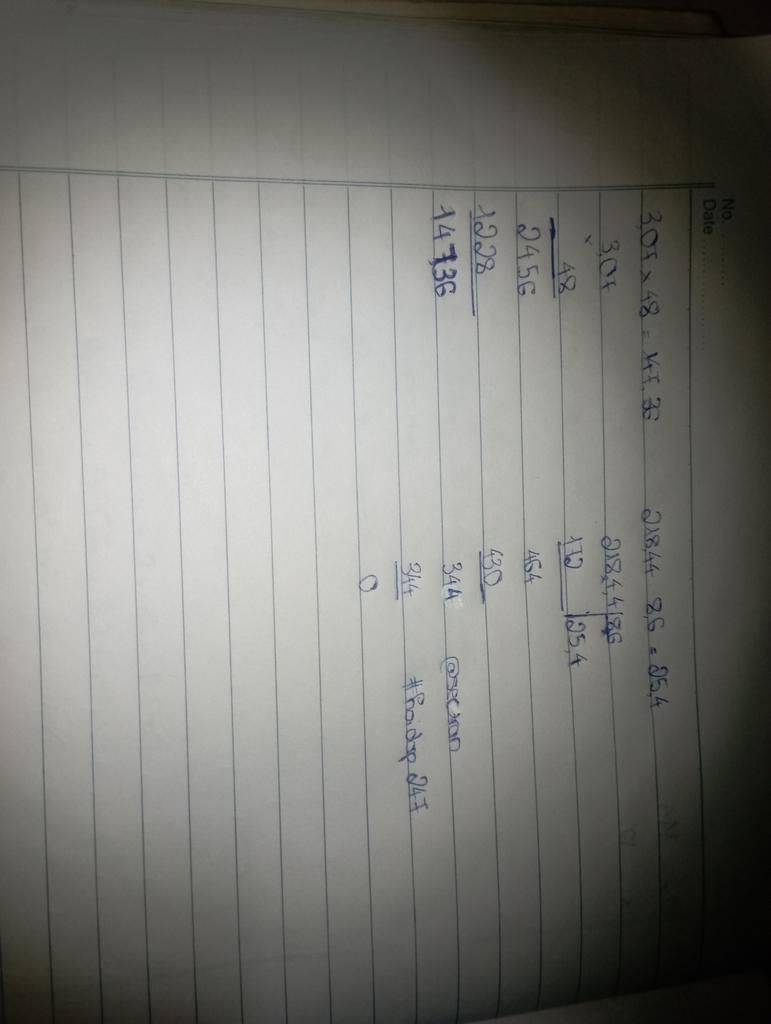 No. ........
Date ....................
3,07 x 48 = 147,36
218,44 8,6 = 25,4
3,07
x
48
2456
1228
147,36
218,4,4 8,6
172 25,4
464
430
344
344
0
#hoidap 247